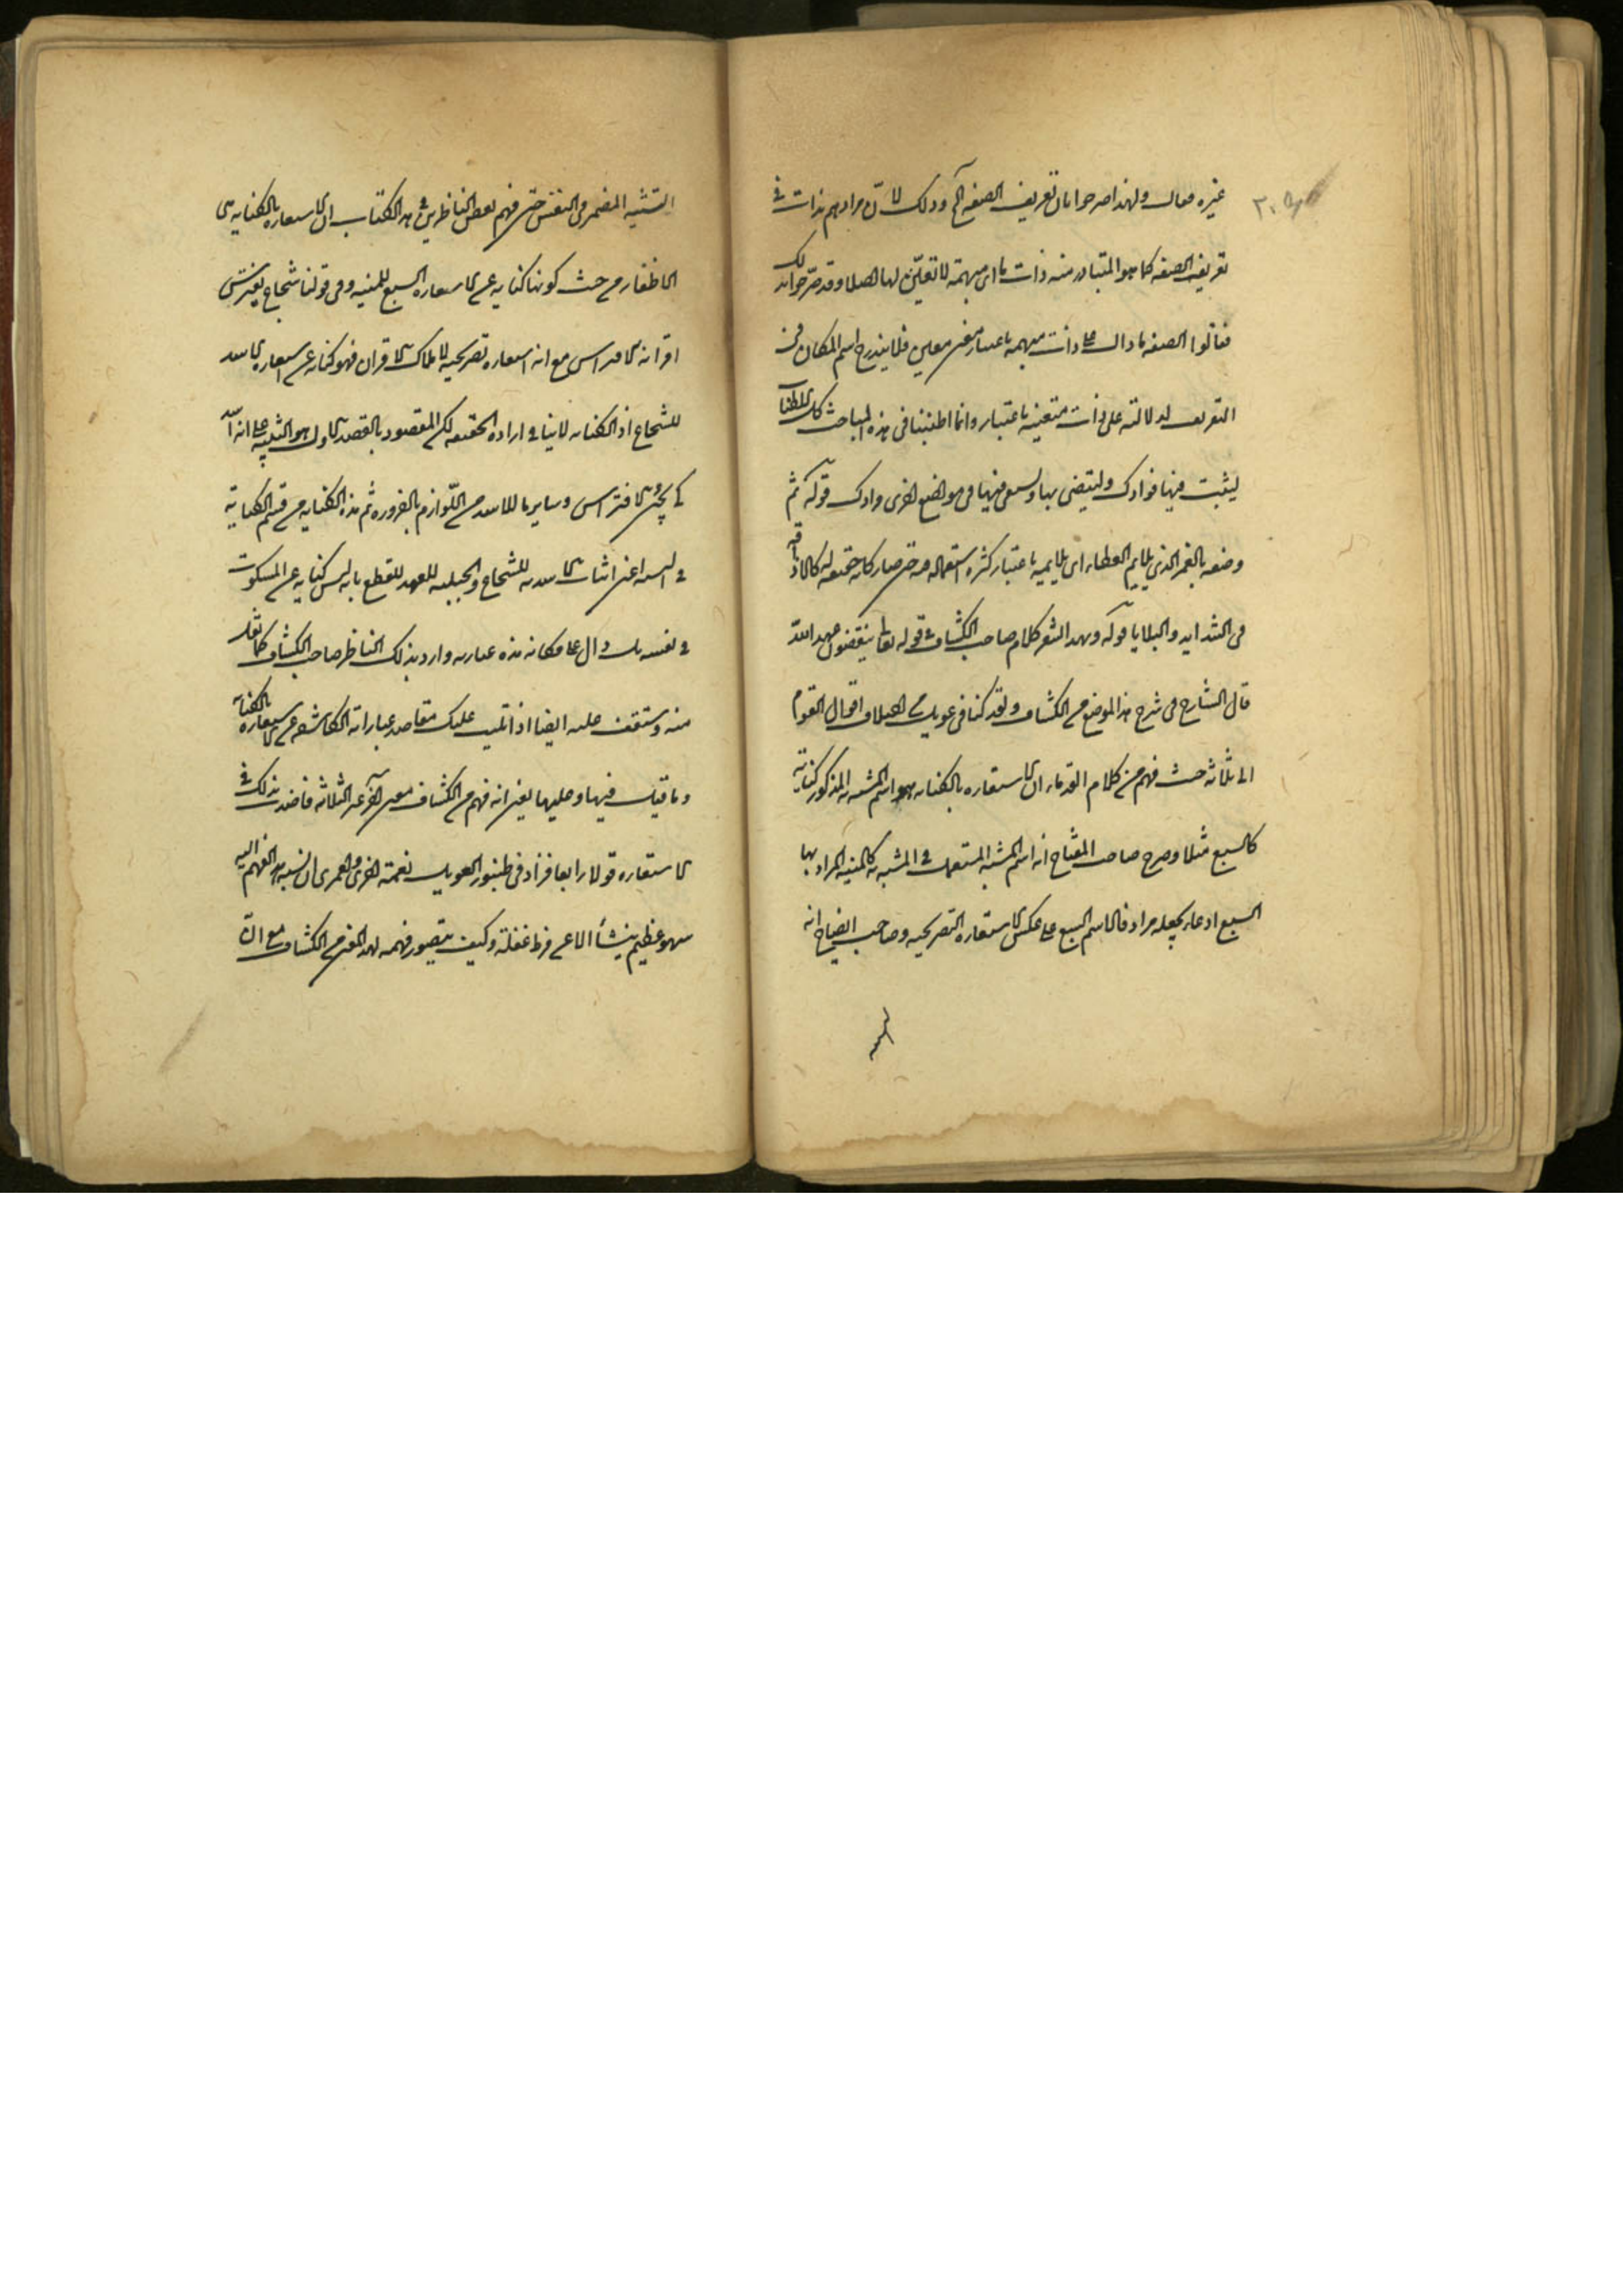 غيره فعال ولهذا صرحوا بان تعريف الصفة آه وذلك لان مرادهم بذات في
تعريف الصفة كما هو المتبادر منه ذات ما اى مبهمة لا تعين لها اصلا وقد صرحوا بذلك
فقالوا الصفة ما دال على ذات مبهمة باعتبار معنى معين فلا يندرج اسم المكان في
التعريف لدلالته على ذات متعينة باعتبار وانما اطنبنا فى هذه المباحث كل الاطناب
ليثبت فيها فوادك ولتقتضى بها ولسعى فيها فى مواضع اخرى وادك قوله ثم
وصفه بالغمر الذى يلايم العطاء اى يلايمه باعتبار كثرة استعماله فيه حتى صار كانه حقيقة له كالاذاقة
فى الشدايد والبلايا قوله ويهدا الشعر كلام صاحب الكشاف فى قوله تعالى ينقضون عهد الله
قال الشارح فى شرح هذا الموضع من الكشاف ولقد كنا فى عويل من اختلاف اقوال القوم
الى ثلاثة حيث فهم من كلام القدماء ان الاستعارة بالكناية هو اسم المشبه به المذكور كناية
كالسبع مثلا وصرح صاحب المفتاح انه اسم المشبه المستعمل فى المشبه به كالمنية المراد بها
السبع ادعاء بجعله مرادفا لاسم السبع على عكس الاستعارة التصريحية وصاحب الايضاح انه
التشبيه المضمر فى النفس حتى فهم بعض الناظرين فى هذا الكتاب ان الاستعارة بالكناية هى
الاظفار من حيث كونها كناية عن استعارة السبع للمنية وفى قولنا شجاع يفترس
اقرانه الافتراس مع انه استعارة تصريحية لاهلاك الاقران فهو كناية عن استعارة الاسد
للشجاع اذ الكناية لا ينافى ارادة الحقيقة لكن المقصود بالقصد الاول هو التنبيه على انه اسد
كى يجئ الافتراس وساير ما للاسد من اللوازم بالضرورة ثم هذه الكناية من قسم الكناية
فى النسبة اعنى اثبات الاسدية للشجاع والحبلية للعهد للقطع بانه ليس كناية عن المسكوت
فى نفسه بل دال على مكانه هذه عبارته واراد بذلك الناظر صاحب الكشف كما نقل
منه وستقف عليه ايضا اذا تليت عليك مقاصد عباراته الكاشفة عن الاستعارة بالكناية
وما قيل فيها وعليها يعنى انه فهم من الكشاف معنى آخر غير الثلاثة فاخذ بذلك فى
الاستعارة قولا رابعا فزاد فى طنبور العويل نغمة اخرى ولعمرى ان نسبة هذا الفهم اليه
سهو عظيم ينشأ الا عن فرط غفلة وكيف يتصور فهمه لهذا المعنى من الكشاف مع ان